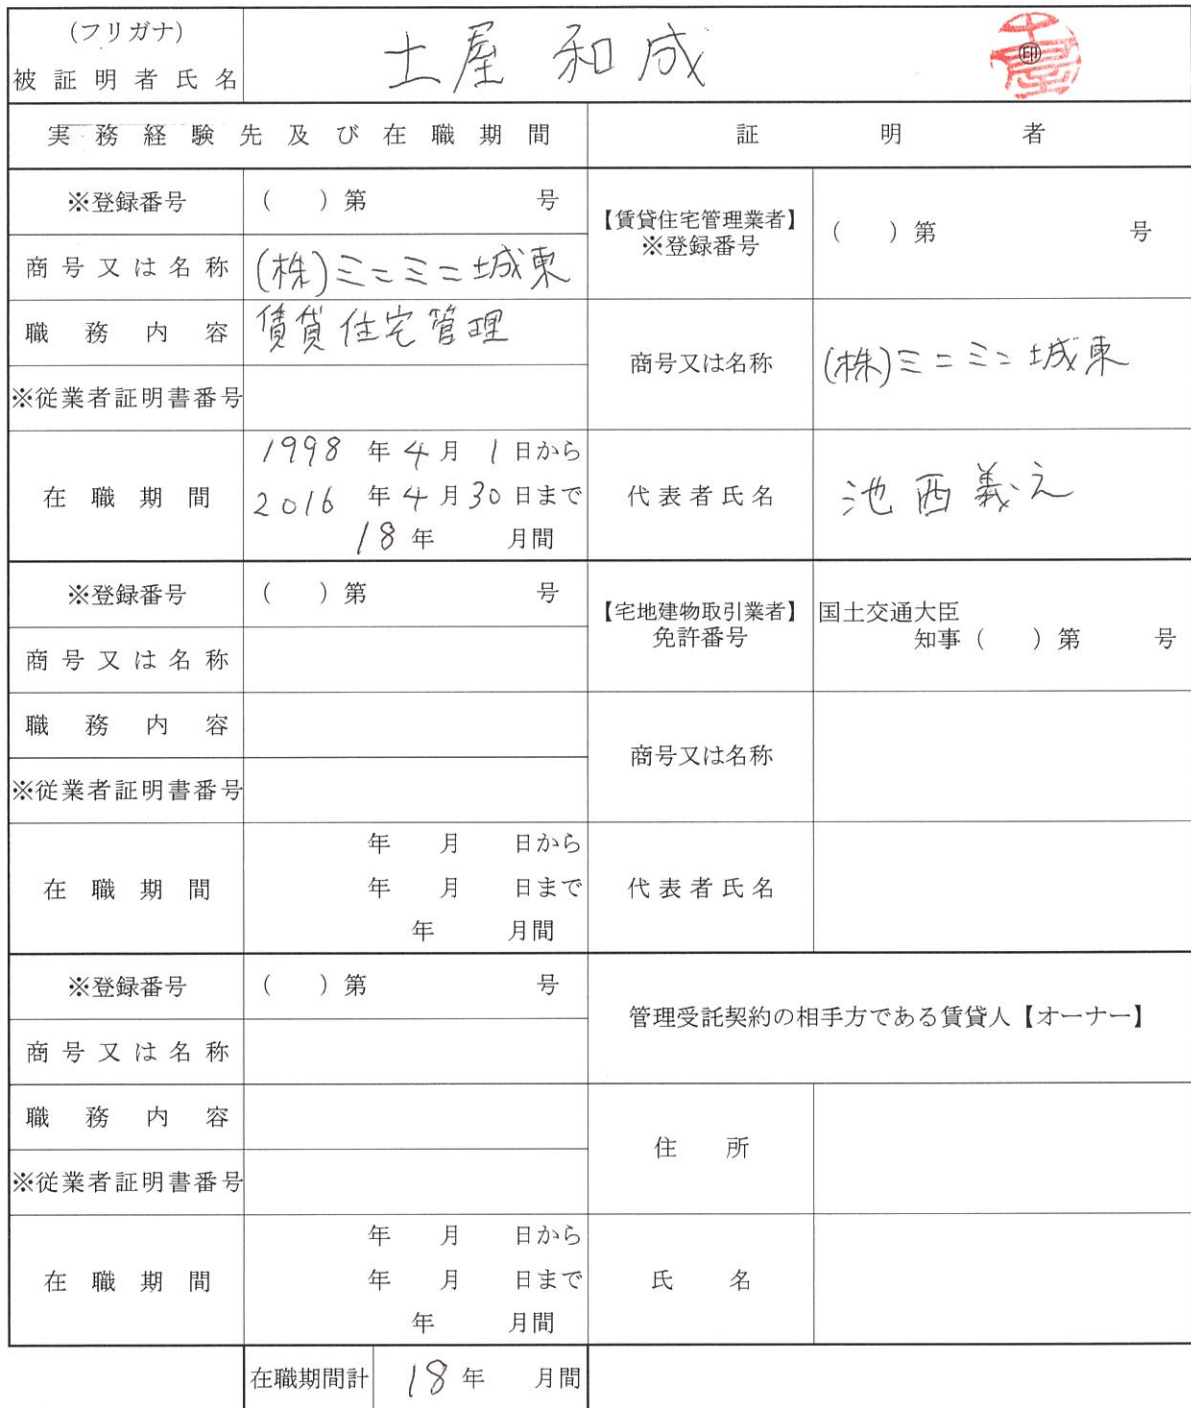 (フリガナ)
被証明者氏名 土屋 和成 ㊞ 土屋
実務経験先及び在職期間 証明者
※登録番号 ( )第 号
【賃貸住宅管理業者】
※登録番号 ( )第 号
商号又は名称 (株)ミニミニ城東
職務内容 賃貸住宅管理
商号又は名称 (株)ミニミニ城東
※従業者証明書番号
在職期間
1998年4月1日から
2016年4月30日まで
18年 月間
代表者氏名 池西義之
※登録番号 ( )第 号
【宅地建物取引業者】
免許番号
国土交通大臣
知事( )第 号
商号又は名称
職務内容
商号又は名称
※従業者証明書番号
在職期間
年 月 日から
年 月 日まで
年 月間
代表者氏名
※登録番号 ( )第 号
管理受託契約の相手方である賃貸人【オーナー】
商号又は名称
職務内容
住所
※従業者証明書番号
在職期間
年 月 日から
年 月 日まで
年 月間
氏名
在職期間計 18年 月間